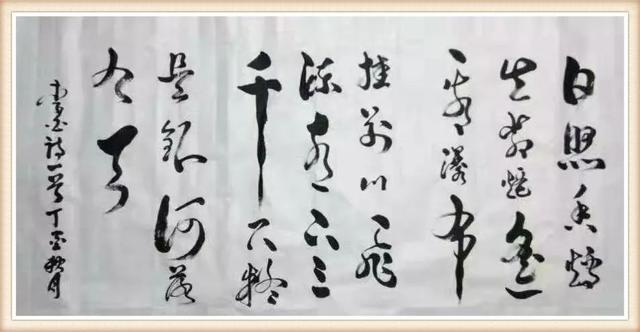 日照香爐
生紫煙遙
看瀑布
挂前川飛
流直下三
千尺疑
是銀河落
九天
李白詩一首丁酉秋月